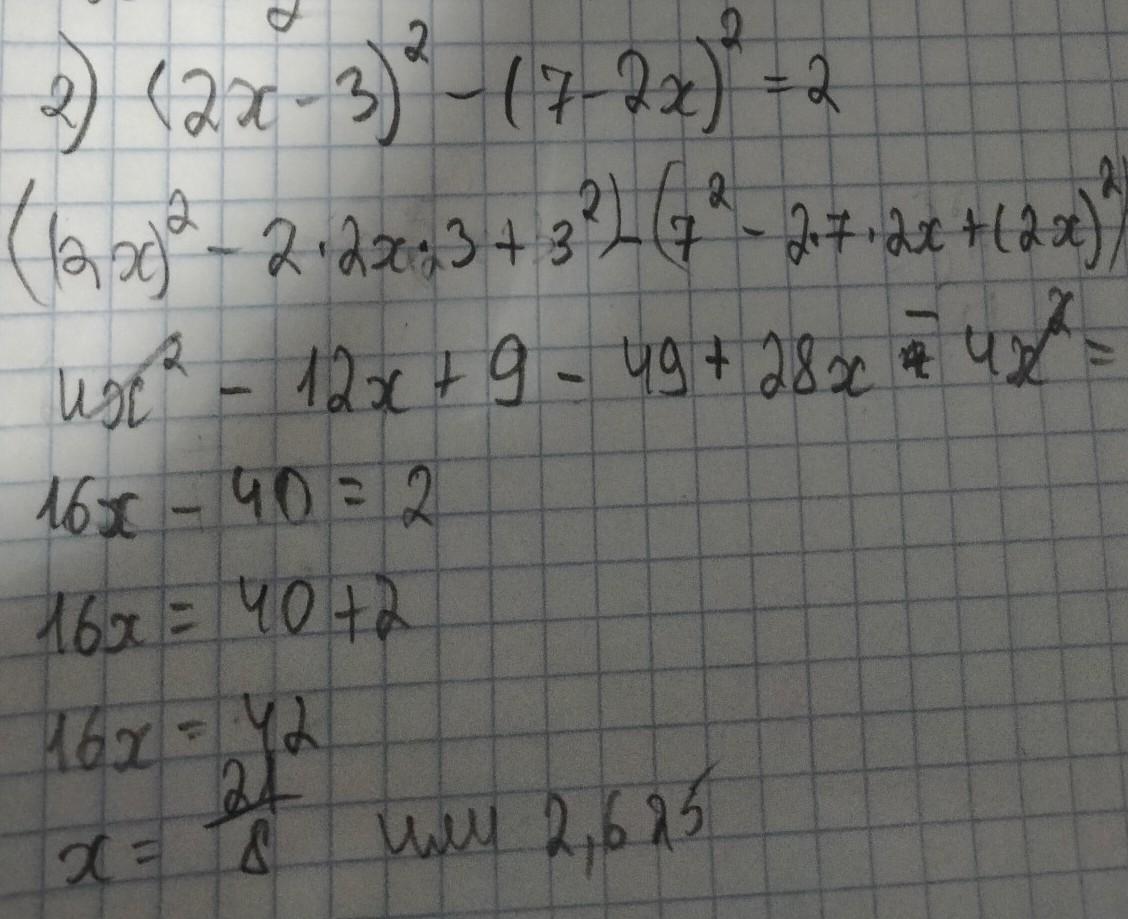 2) (2x - 3)² - (7 - 2x)² = 2
((2x)² - 2·2x·3 + 3²) - (7² - 2·7·2x + (2x)²)
4x² - 12x + 9 - 49 + 28x - 4x² =
16x - 40 = 2
16x = 40 + 2
16x = 42
x = 21/8 или 2,625